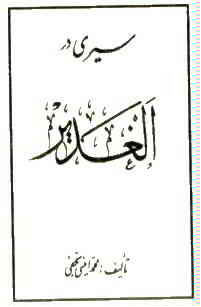 سیری در
اَلغَدیر
تألیف: محمد امینی نجفی